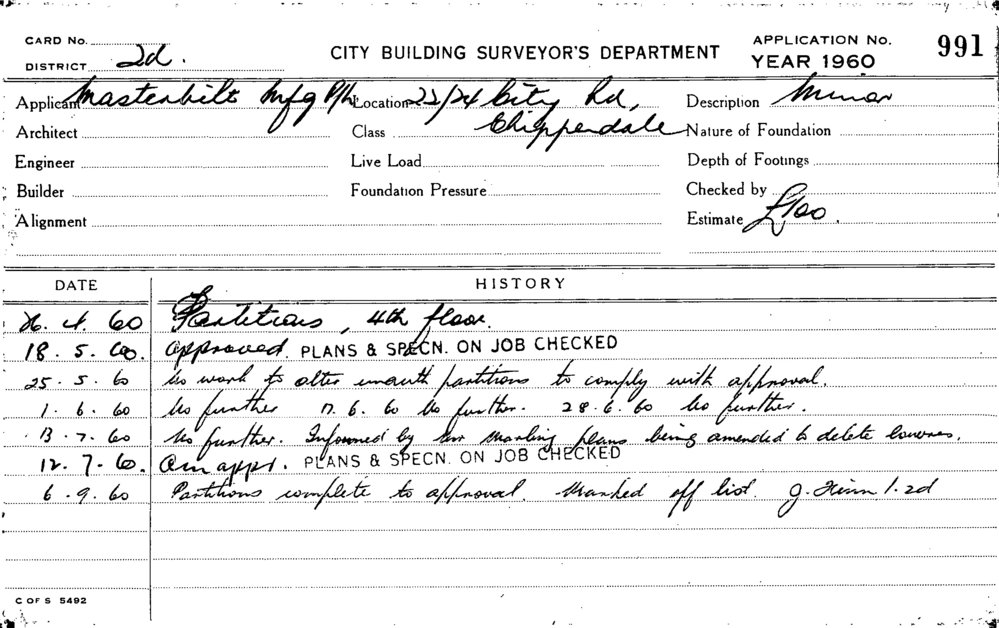 CARD No.
DISTRICT 2d.
CITY BUILDING SURVEYOR'S DEPARTMENT
APPLICATION No. 991
YEAR 1960
Applicant Masterbilt Mfg P/L Location 22/24 City Rd, Description Minor
Architect Class Chippendale Nature of Foundation
Engineer Live Load Depth of Footings
Builder Foundation Pressure Checked by
Alignment Estimate £700.
DATE HISTORY
4. 60 Partitions, 4th floor.
18. 5. 60. Approved. PLANS & SPECN. ON JOB CHECKED
25. 5. 60 No work to alter unauth partitions to comply with approval.
1. 6. 60 No further 17. 6. 60 No further. 28. 6. 60 No further.
13. 7. 60 No further. Informed by Mr Marling plans being amended to delete louvres.
12. 7. 60. Am appr. PLANS & SPECN. ON JOB CHECKED
6. 9. 60 Partitions complete to approval. Marked off list. J. 1. 2d
C OF S 5492